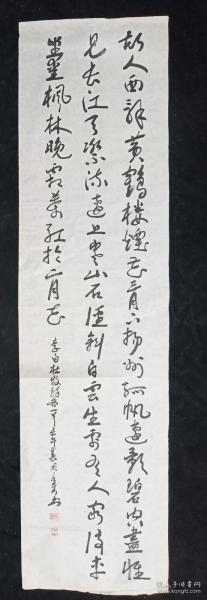 故人西辞黄鹤楼烟花三月下扬州孤帆远影碧空尽惟
见长江天际流远上寒山石径斜白云生处有人家停车
坐爱枫林晚霜叶红于二月花
李白杜牧诗